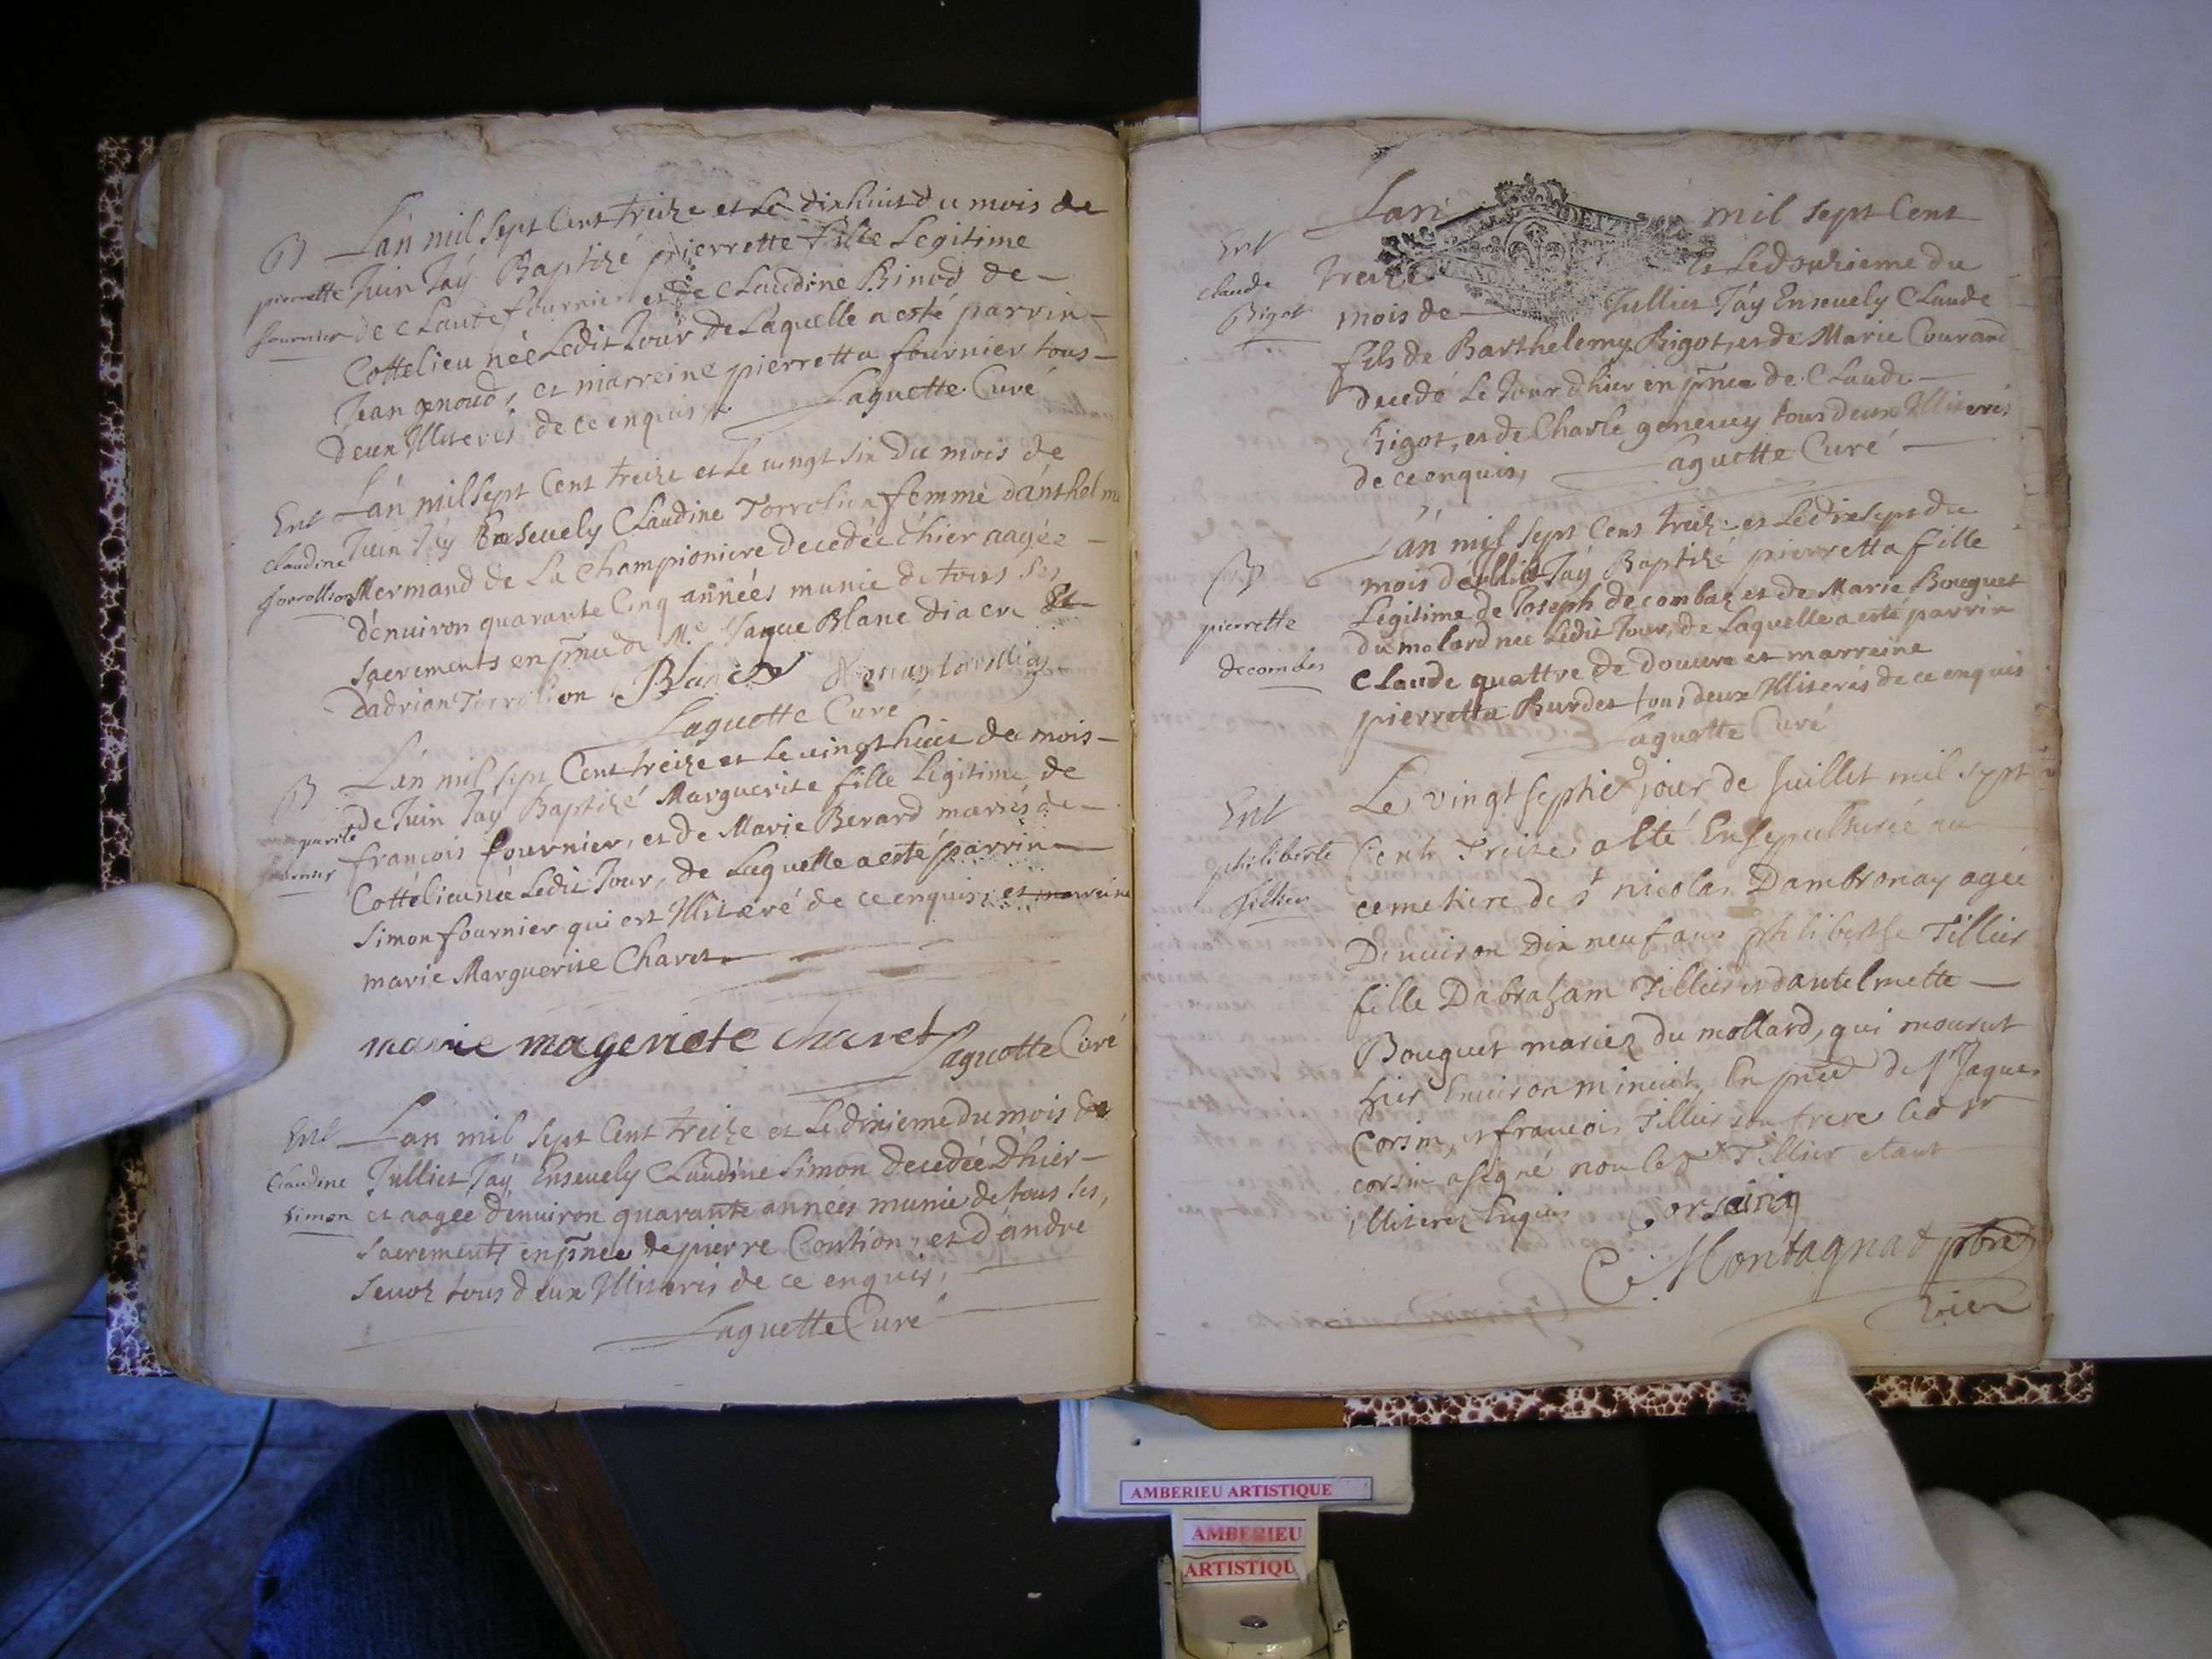 B
pierrette
fournier
Lán mil sept Cent treize et Le dixhuit du mois de
Juin Jáy Baptizé pierrette fille Legitime
de Claude fournier et de Claudine Binod de
Cottelieu née Ledit Jour de Laquelle a esté parrin
Jean genoud, et marreine pierretta fournier tous
deux Illiterés de ce enquis
Laguette Curé
Ent
Claudine
Torrollion
Lán mil sept Cent treize et Le vingt six du mois de
Juin Jáy Ensevely Claudine femme dánthelme
Mermand de La Championiere decedée hier aagée
dénuiron quarante Cinq années munie de tous ses
sacrements en pn̄ce de Me Jaque Blanc diacre et
Dadrian Torrolion Blanc
Laguette Curé
B
guerite
fournier
Lán mil sept Cent treize et Le vingt huit du mois
de Juin Jay Baptizé Marguerite fille Legitime de
françois fournier, et de Marie Berard mariés de
Cottelieu née Ledit Jour, de Laquelle a esté parrin
Simon fournier qui est Illiteré de ce enquis, et marreine
marie Marguerite Charet
marie magericte charet
Laguette Curé
Ent
Claudine
Simon
Lan mil sept Cent treize et Le dixieme du mois de
Julliet Jáy Ensevely Claudine Simon decedée Dhier
et aagée dénuiron quarante annees munie de tous ses,
sacrements en pn̄ce de pierre Contion, et Dándré
Sevoz tous deux Illiterés de ce enquis,
Laguette Curé
Ent
Claude
Bigot
Lan mil sept Cent
treize et Le douzieme du
mois de Julliet Jáy Ensevely Claude
fils de Barthelemy Bigot, et de Marie Courand
decedé Le Jour dhier en pn̄ce de Claude
Bigot, et de Charle genevey tous deux Illiterés
de ce enquis,
Laguette Curé
B
pierrette
decombes
Lán mil sept Cent treize et Le dixsept du
mois de Julliet Jáy Baptizé pierretta fille
Legitime de Joseph decombaz et de Marie Bouguet
du molard née Ledit Jour, de Laquelle a esté parrin
Claude quattre de douvre et marreine
pierretta Burdet tous deux Illiterés de ce enquis
Laguette Curé
Ent
philiberte
Tillier
Le vingt septie jour de Juillet mil sept
Cent Treize a esté Ensepulturée au
cemetiere de St nicolas Dambronay agée
Denuiron Dix neuf ans philiberthe Tillier
fille Dabraham Tillier et dantelmette
Bouguet mariez du mollard, qui mourut
hier Enuiron minuit, En pn̄ce de Sr Jaques
Corsin, et francois Tillier son frere led Sr
corsin a signé non led Tillier etant
illiterez Enquis Corsain
C. Montagnat pbre
vic
DEIZ
AMBERIEU ARTISTIQUE
AMBERIEU
ARTISTIQU